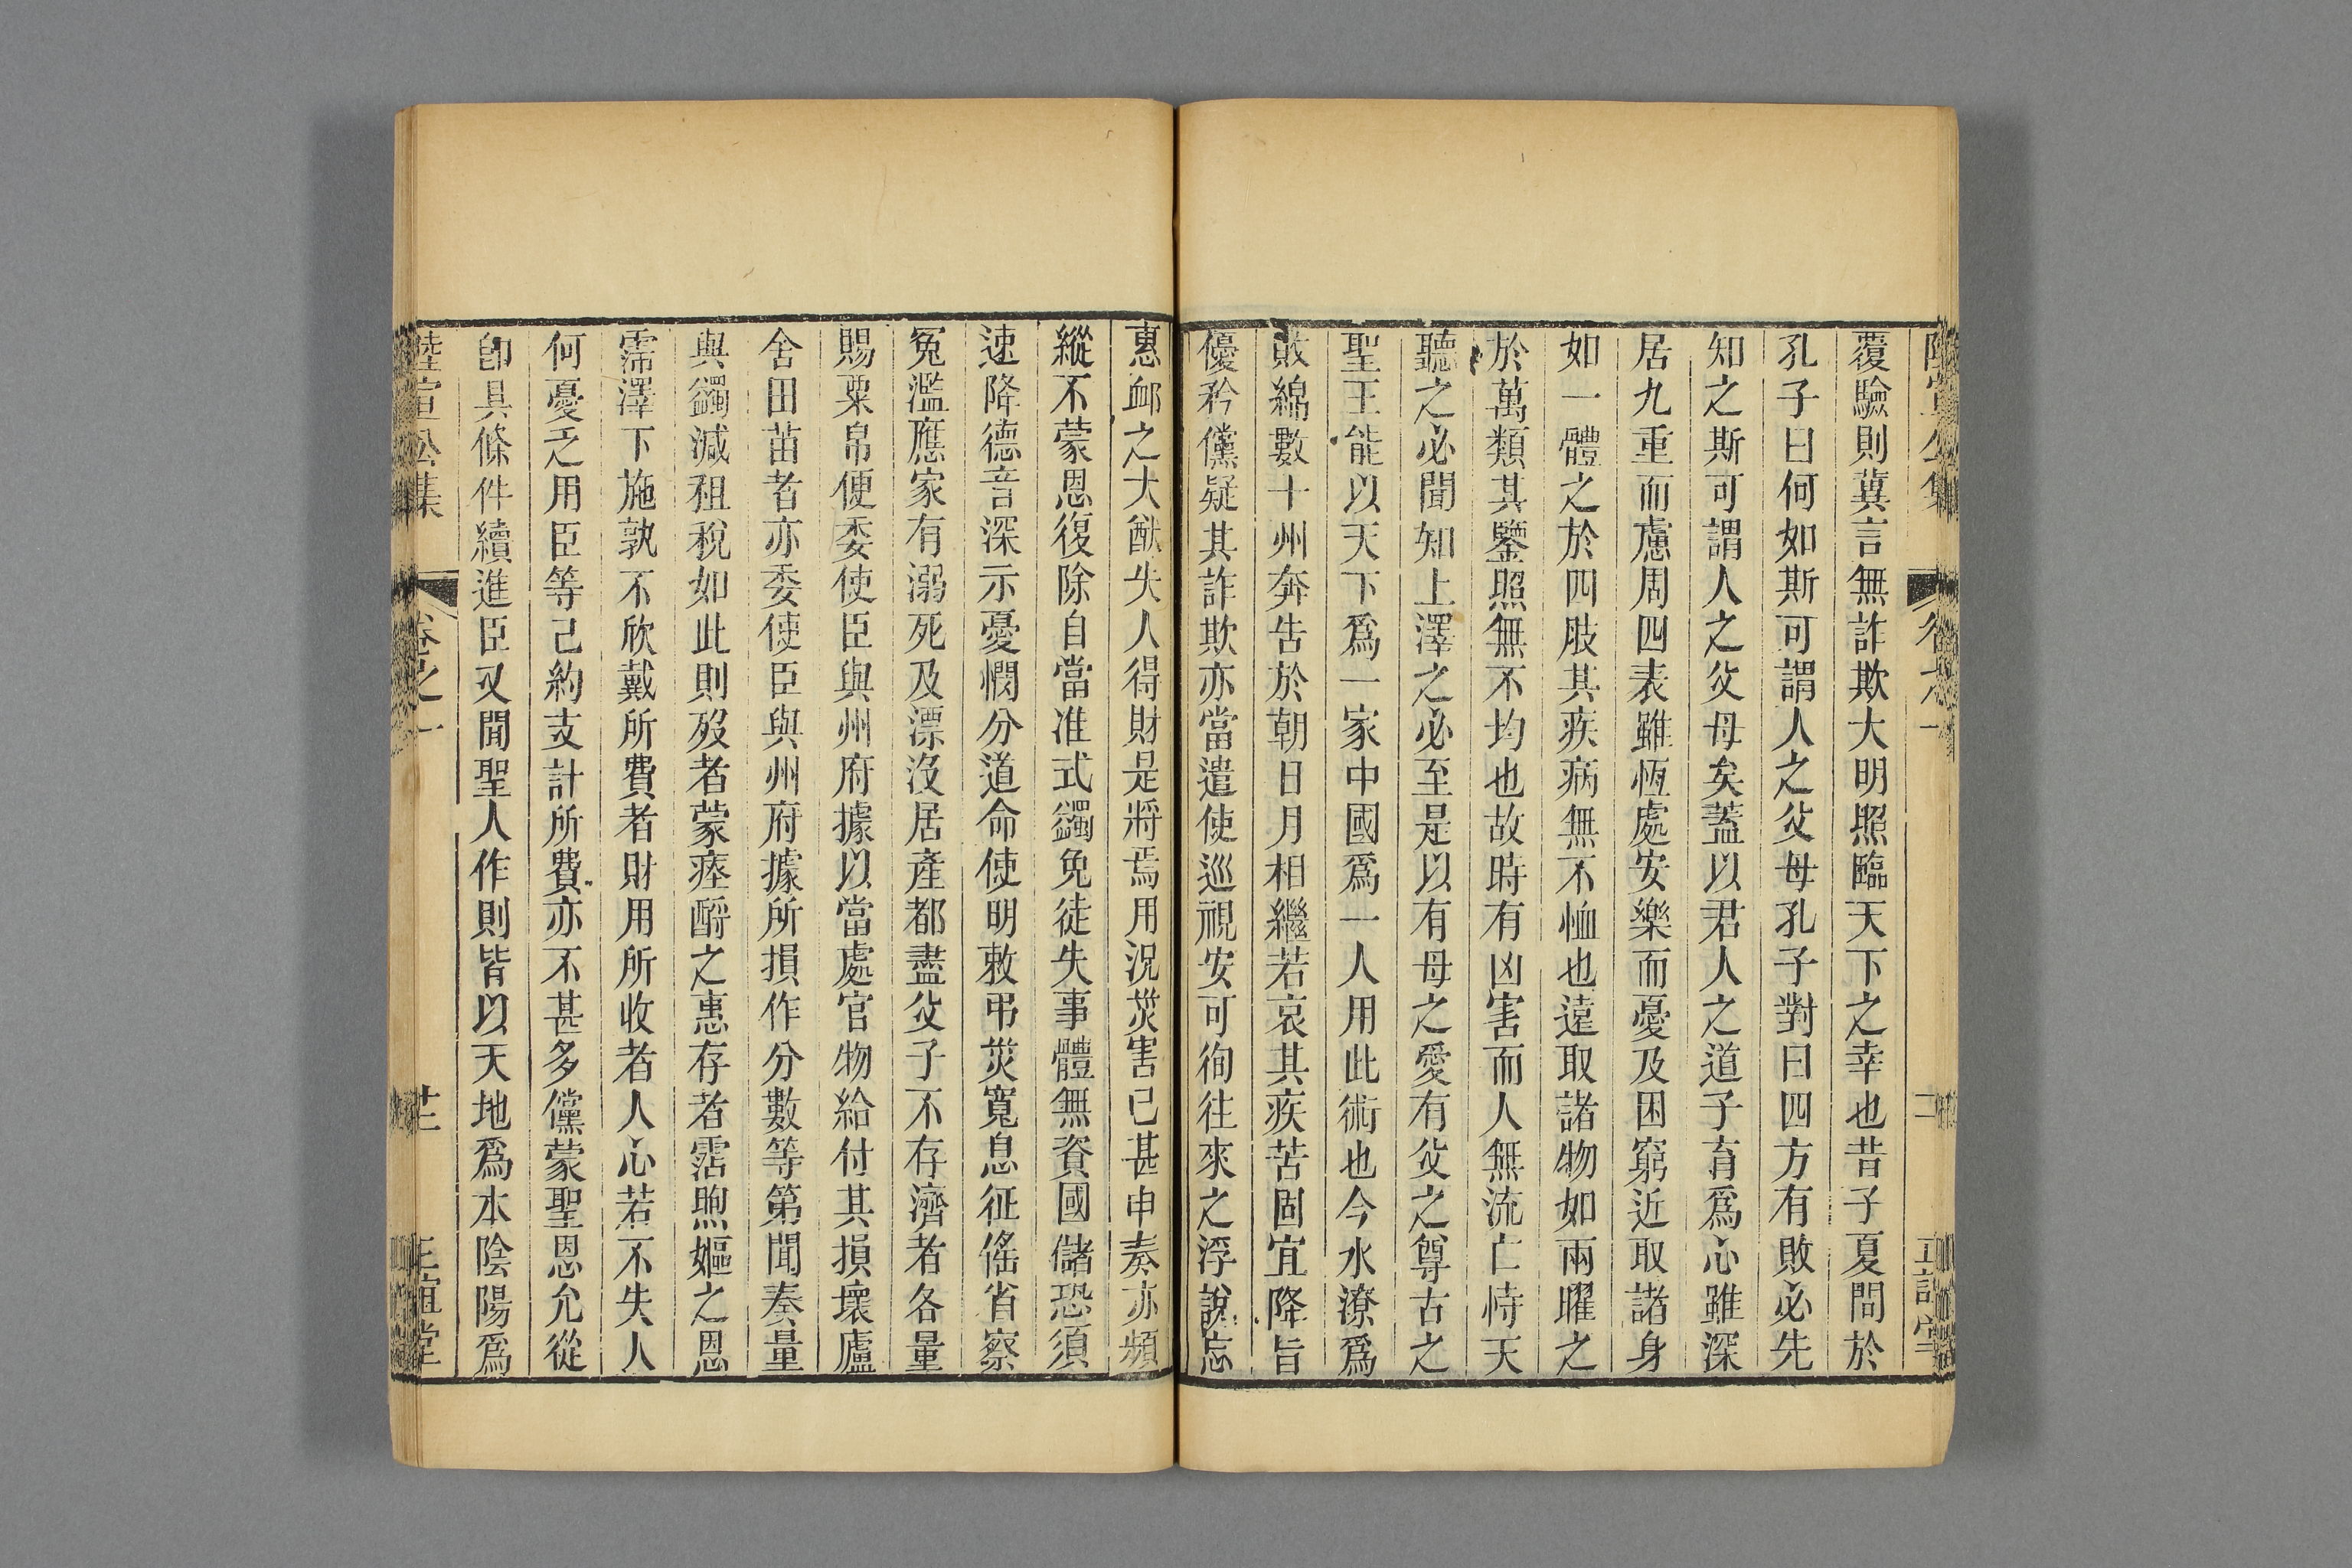 覆驗則冀言無詐欺大明照臨天下之幸也昔子夏問於
孔子曰何如斯可謂人之父母孔子對曰四方有敗必先
知之斯可謂人之父母矣蓋以君人之道子育爲心雖深
居九重而慮周四表雖恆處安樂而憂及困窮近取諸身
如一體之於四肢其疾病無不恤也遠取諸物如兩曜之
於萬類其鑒照無不均也故時有凶害而人無流亡恃天
聽之必聞知上澤之必至是以有母之愛有父之尊古之
聖王能以天下爲一家中國爲一人用此術也今水潦爲
敗綿數十州奔告於朝日月相繼若哀其疾苦固宜降旨
優矜儻疑其詐欺亦當遣使巡視安可徇往來之浮說忘
惠䘏之大猷失人得財是將焉用況災害已甚申奏亦頻
縱不蒙恩復除自當准式蠲免徒失事體無資國儲恐須
速降德音深示憂憫分道命使明敕弔災寬息征徭省察
冤濫應家有溺死及漂沒居產都盡父子不存濟者各量
賜粟帛便委使臣與州府據以當處官物給付其損壞廬
舍田苗者亦委使臣與州府據所損作分數等第聞奏量
與蠲減租稅如此則歿者蒙瘞酹之惠存者霑煦嫗之恩
霈澤下施孰不欣戴所費者財用所收者人心若不失人
何憂乏用臣等已約支計所費亦不甚多儻蒙聖恩允從
卽具條件續進臣又聞聖人作則皆以天地爲本陰陽爲
陸宣公集 卷之一 正誼堂